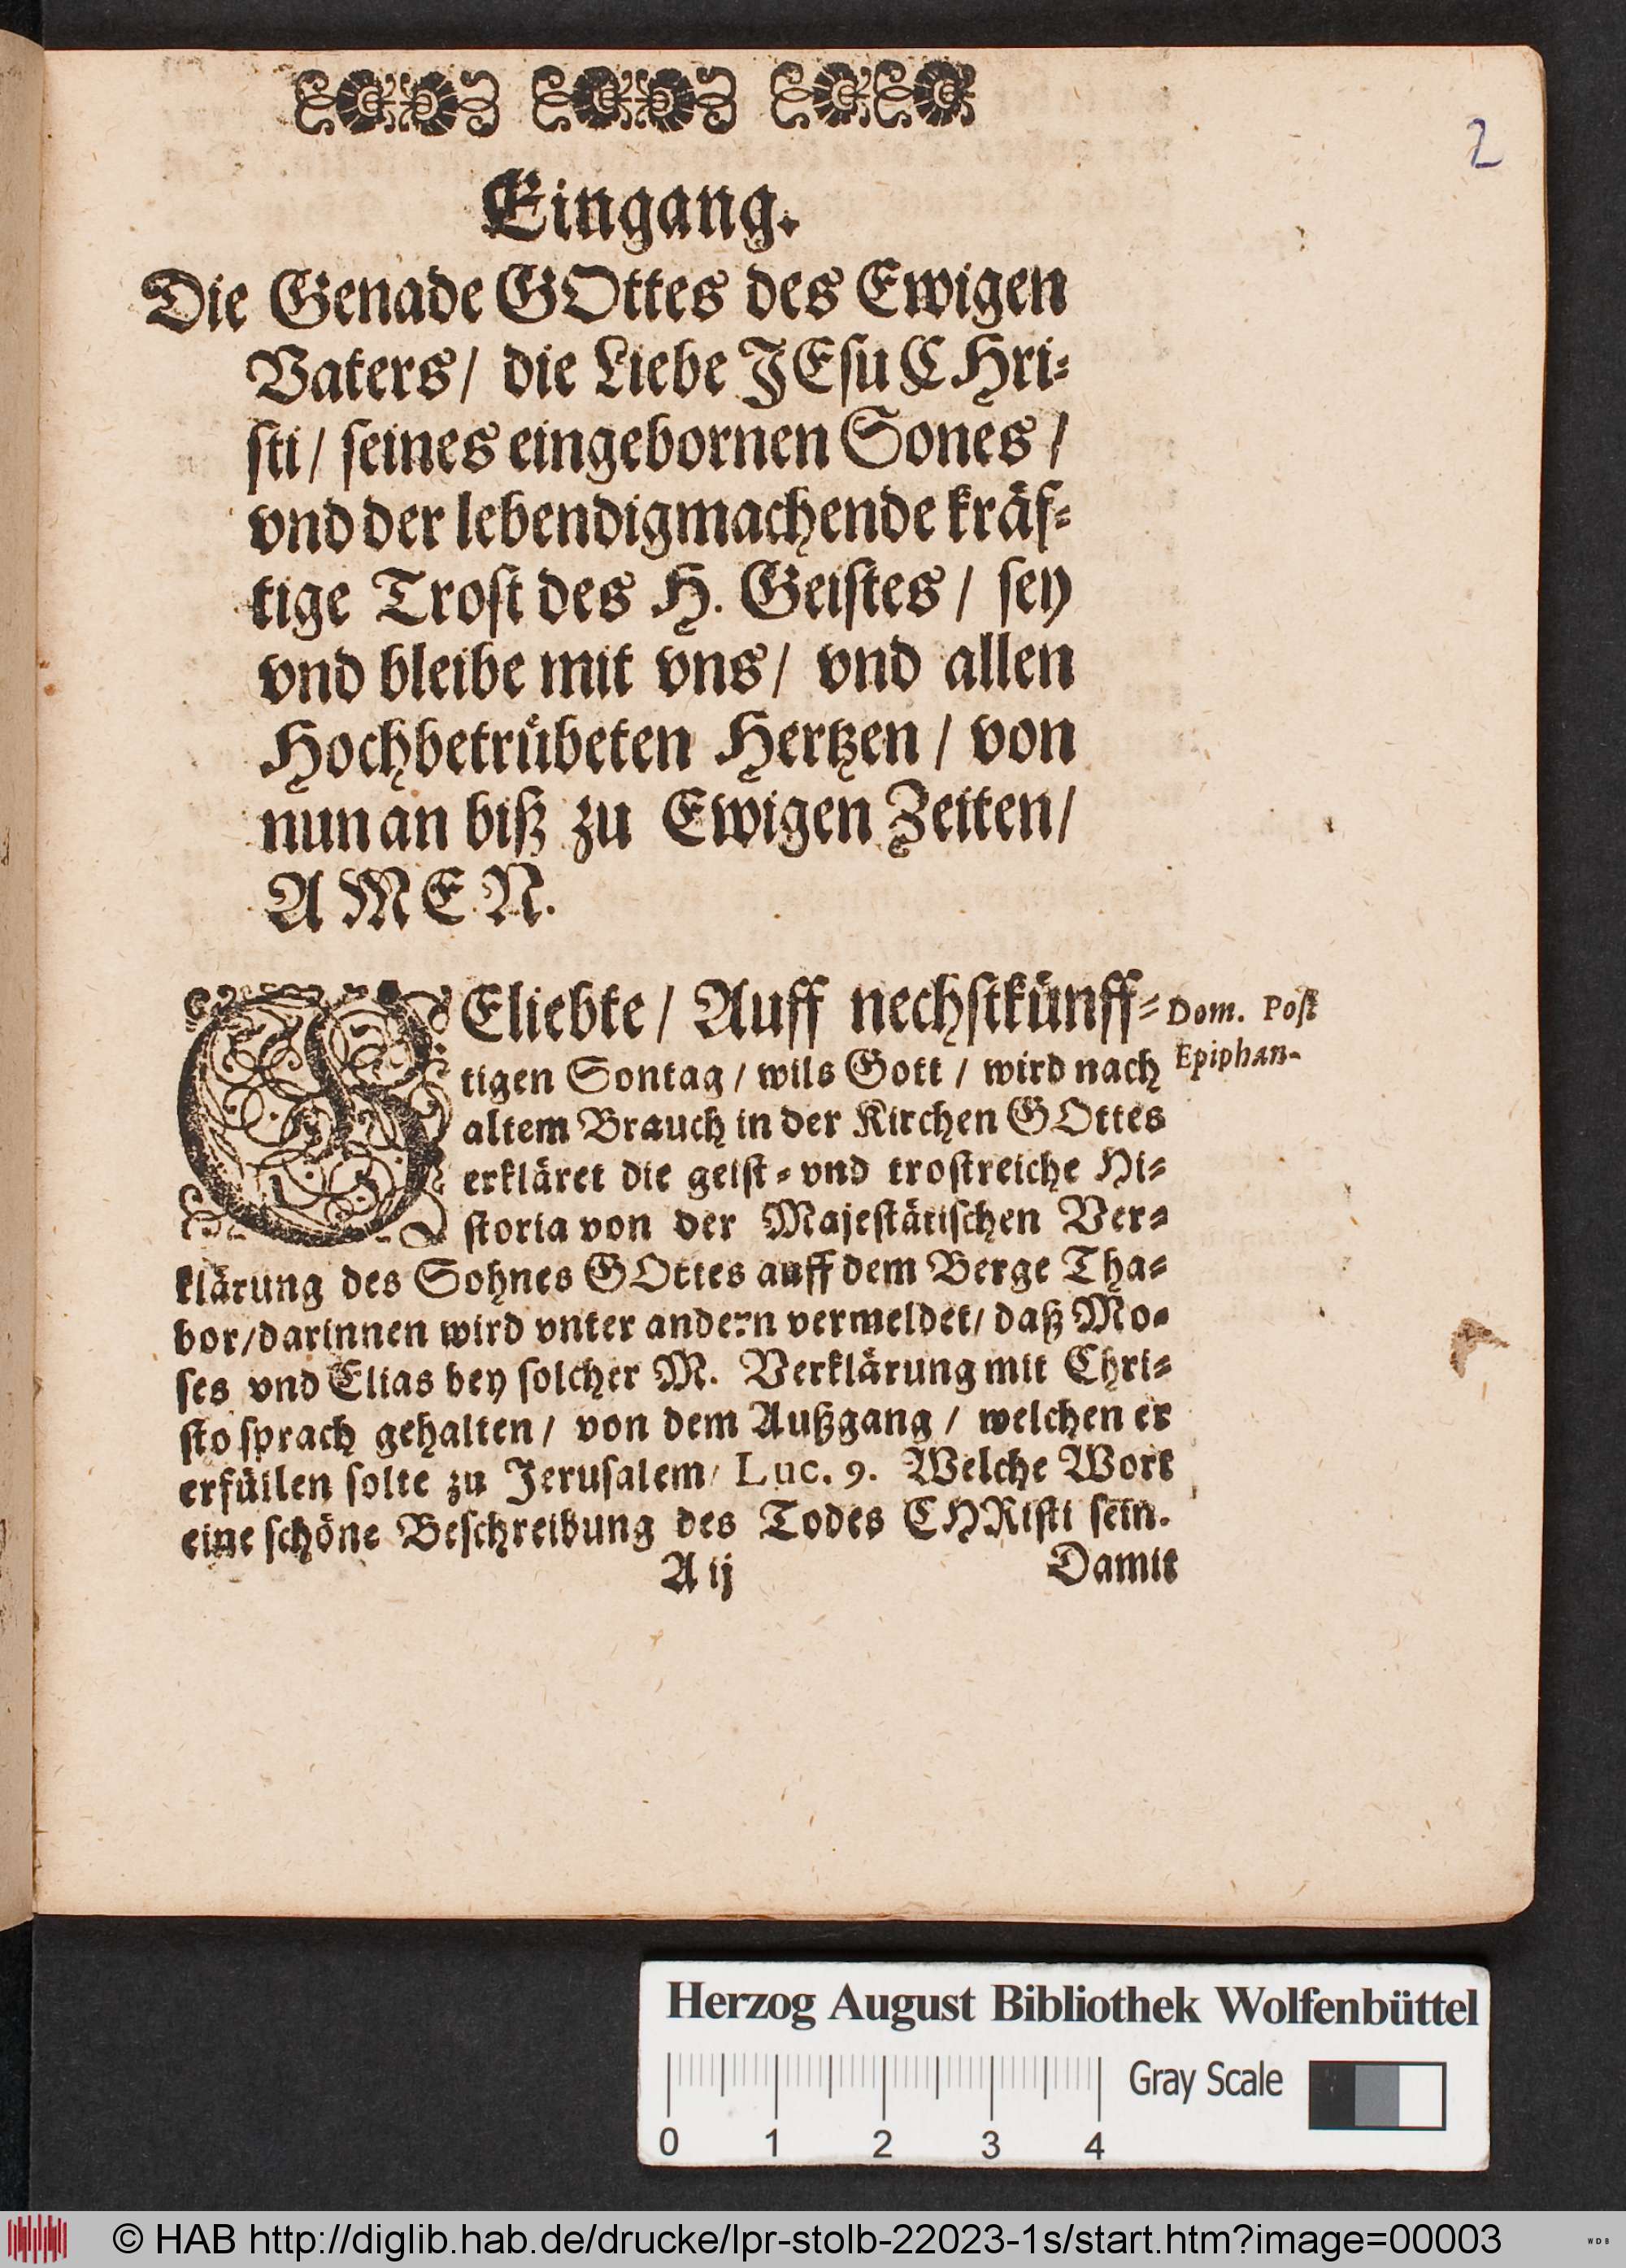 2
Eingang.
Die Genade GOttes des Ewigen
Vaters/ die Liebe JEsu CHri⸗
sti/ seines eingebornen Sones/
vnd der lebendigmachende kräf⸗
tige Trost des H. Geistes/ sey
vnd bleibe mit vns/ vnd allen
Hochbetrübeten Hertzen/ von
nun an biß zu Ewigen Zeiten/
AMEN.
GEliebte/ Auff nechstkünff⸗
Dom. Post
Epiphan.
tigen Sontag/ wils Gott/ wird nach
altem Brauch in der Kirchen GOttes
erkläret die geist⸗ vnd trostreiche Hi⸗
storia von der Majestätischen Ver⸗
klärung des Sohnes GOttes auff dem Berge Tha⸗
bor/ darinnen wird vnter andern vermeldet/ daß Mo⸗
ses vnd Elias bey solcher M. Verklärung mit Chri⸗
sto sprach gehalten/ von dem Außgang/ welchen er
erfüllen solte zu Jerusalem/ Luc. 9. Welche Wort
eine schöne Beschreibung des Todes CHRisti sein.
A ij
Damit
Herzog August Bibliothek Wolfenbüttel
Gray Scale
0 1 2 3 4
© HAB http://diglib.hab.de/drucke/lpr-stolb-22023-1s/start.htm?image=00003
WDB